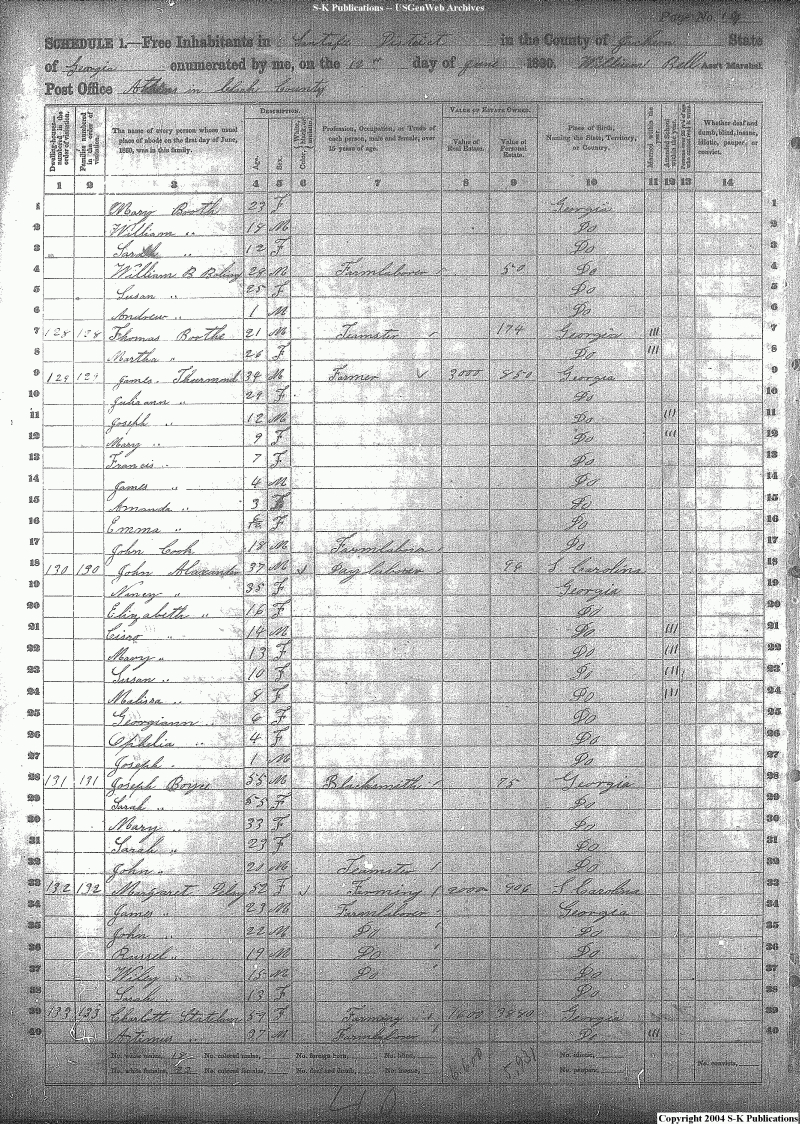 S-K Publications -- USGenWeb Archives
Page No. 19
SCHEDULE 1.—Free Inhabitants in District in the County of Jackson State
of Georgia enumerated by me, on the 12th day of June 1860. William Bell Ass't Marshal.
Post Office Athens in County
DESCRIPTION. VALUE OF ESTATE OWNED.
Dwelling-houses—numbered in the order of visitation. Families numbered in the order of visitation. The name of every person whose usual place of abode on the first day of June, 1860, was in this family. Age. Sex. Profession, Occupation, or Trade of each person, male and female, over 15 years of age. Value of Real Estate. Value of Personal Estate. Place of Birth, Naming the State, Territory, or Country. Married within the year. Attended School within the year. Whether deaf and dumb, blind, insane, idiotic, pauper, or convict.
1 2 3 4 5 6 7 8 9 10 11 12 13 14
1 Mary Booth 23 F Georgia 1
2 William " 18 M Do 2
3 Sarah " 12 F Do 3
4 William B 28 M Farmlaborer 50 Do 4
5 Susan " 25 F Do 5
6 Andrew " 1 M Do 6
7 128 128 Thomas Boothe 21 M Teamster 174 Georgia /// 7
8 Martha " 26 F Do /// 8
9 129 129 James Thurmond 34 M Farmer 3000 850 Georgia 9
10 Juliann " 29 F Do 10
11 Joseph " 12 M Do /// 11
12 Mary " 9 F Do /// 12
13 Francis " 7 F Do 13
14 James " 4 M Do 14
15 Amanda " 3 F Do 15
16 Emma " F Do 16
17 John Cook 18 M Farmlabora Do 17
18 130 130 John Alaxander 37 M Day laborer 96 S Carolina 18
19 Nincy " 35 F Georgia 19
20 Elizabeth " 16 F Do 20
21 Cisro " 14 M Do /// 21
22 Mary " 13 F Do /// 22
23 Susan " 10 F Do /// 23
24 Malissa " 8 F Do /// 24
25 Georgiann " 6 F Do 25
26 Ophelia " 4 F Do 26
27 Joseph " 1 M Do 27
28 131 131 Joseph 55 M Blacksmith 75 Georgia 28
29 Sarah " 55 F Do 29
30 Mary " 33 F Do 30
31 Sarah " 23 F Do 31
32 John " 20 M Teamster Do 32
33 132 132 Margaret 52 F Farming 2000 906 S Carolina 33
34 James " 23 M Farmlaborer Georgia 34
35 John " 22 M Do Do 35
36 Russel " 19 M Do Do 36
37 Wiley " 15 M Do Do 37
38 Sarah " 13 F Do 38
39 133 133 Charlott 59 F Farming 1600 Georgia 39
40 Artimus " 37 M Farmlaborer Do /// 40
No. white males, 18 No. colored males, No. foreign born, No. blind, No. idiotic,
No. white females, 22 No. colored females, No. deaf and dumb, No. insane, 6.600 5.931 No. paupers, No. convicts,
40
Copyright 2004 S-K Publications